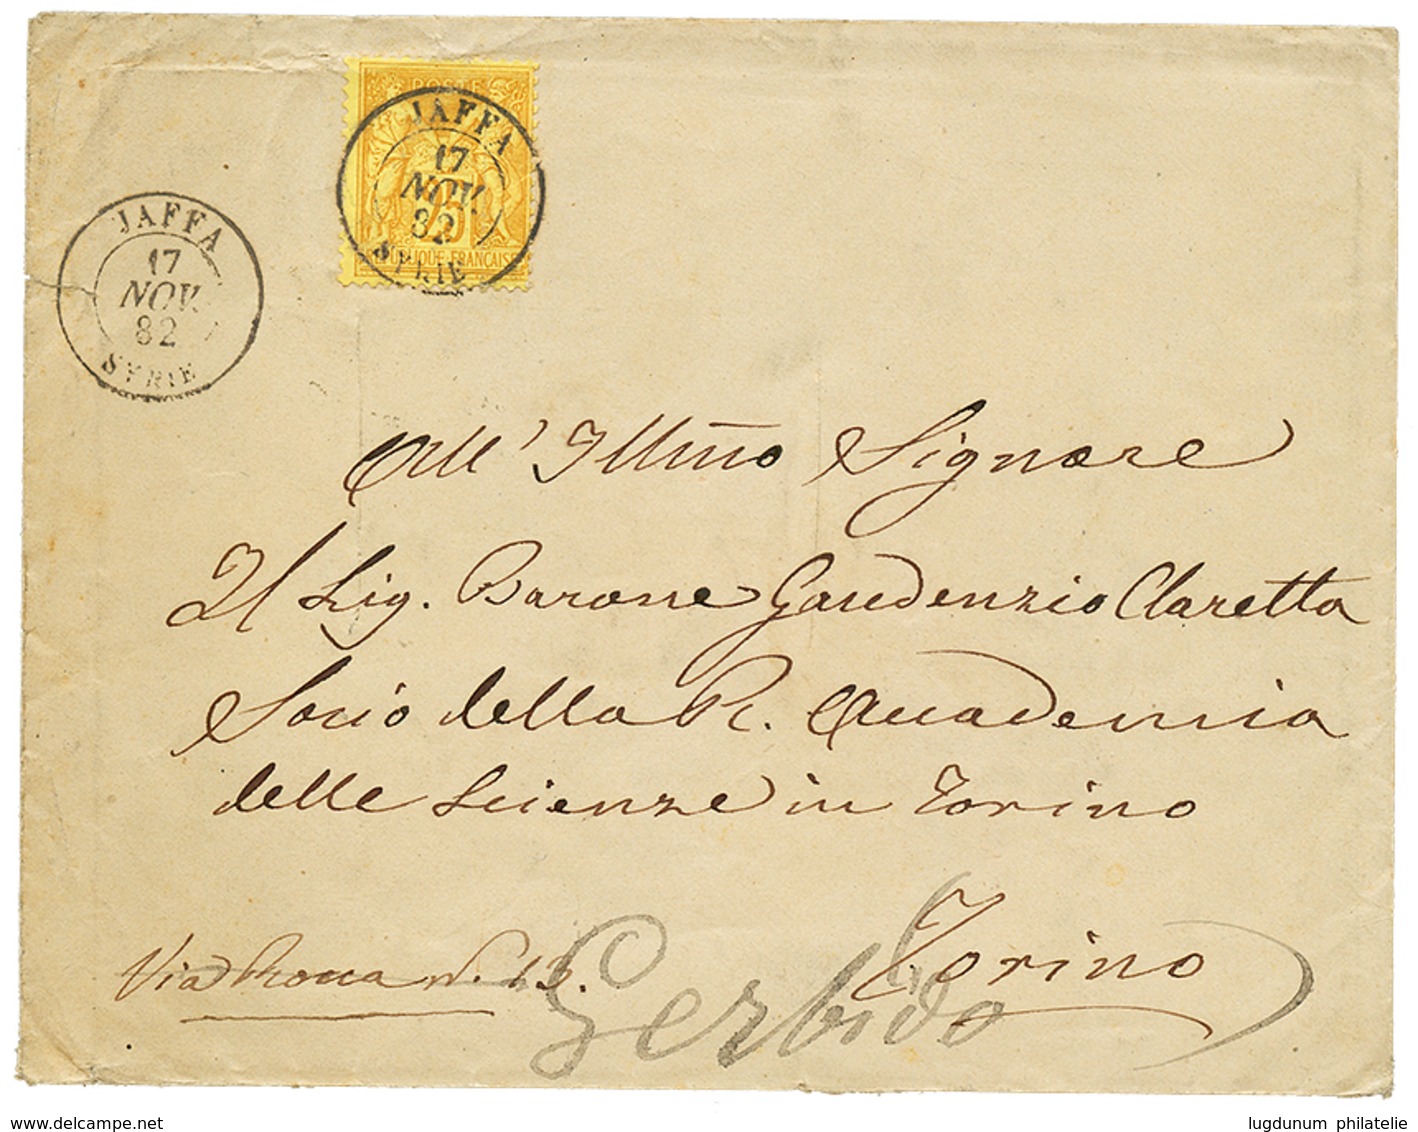 JAFFA
17
NOV.
82
SYRIE
POSTE
JAFFA
17
NOV.
82
SYRIE
25
PUBLIQUE FRANCAISE
All' Illmo Signore
Il Sig. Barone Gaudenzio Claretta
Socio della R. Accademia
delle Scienze in Torino
Torino
Via Rocca N. 13.
Gerbido
www.delcampe.net
lugdunum philatelie